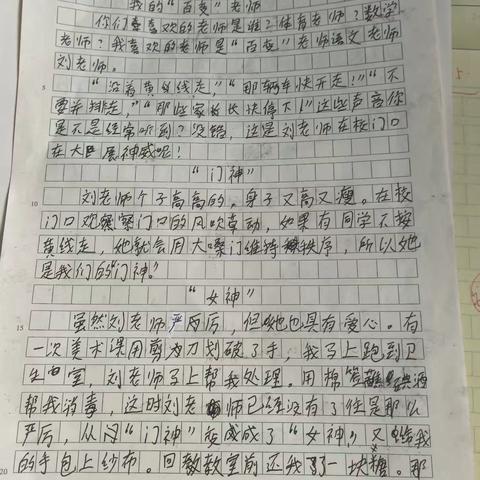 我的“百变”老师
你们喜喜欢的老师是谁?体育老师?数学
老师?我喜欢的老师是“百变”老师语文老师
刘老师。
“沿着黄线线走,”“那辆车快开走!”“不
要并排走,”“那些家长快停下!”这些声音你
是不是经常听到?没错,这是刘老师在校门口
在大显神威呢!
“门神”
刘老师个子高高的,身子又高又瘦。在校
门口观察门口的风吹草动,如果有同学不按
黄线走,她就会用大嗓门维持秩序,所以她
是我们的门神!
“女神”
虽然刘老师严厉,但她也具有爱心。有
一次美术课用剪刀划破了手,我马上跑到卫
生室,刘老师马上帮我处理。用棉签碘酒
帮我消毒,这时刘老师已经没有了往是那么
严厉,从“门神”变成了“女神”,又给我
的手包上纱布。回教室前还我了一块糖。那
5
10
15
20